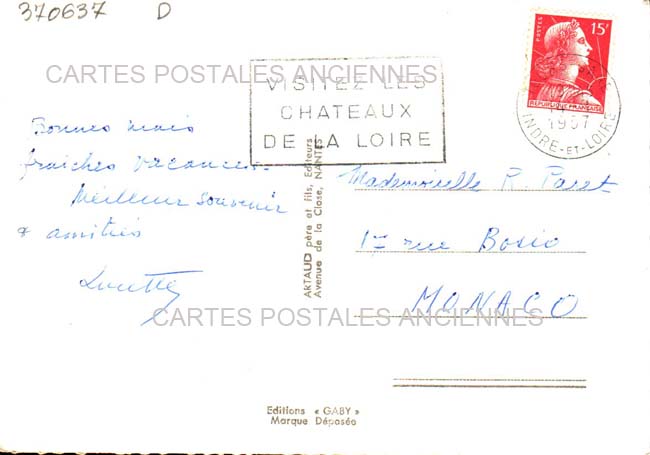 370637 D
CARTES POSTALES ANCIENNES
VISITEZ LES
CHATEAUX
DE LA LOIRE
POSTES
15F
REPUBLIQUE FRANÇAISE
1957
INDRE-ET-LOIRE
Bonnes mais
fraîches vacances.
Meilleur souvenir
& amitiés
ARTAUD père et fils, Editeurs
Avenue de la Close, NANTES
Mademoiselle R. Paret
1 rue Bosio
MONACO
CARTES POSTALES ANCIENNES
Editions « GABY »
Marque Déposée